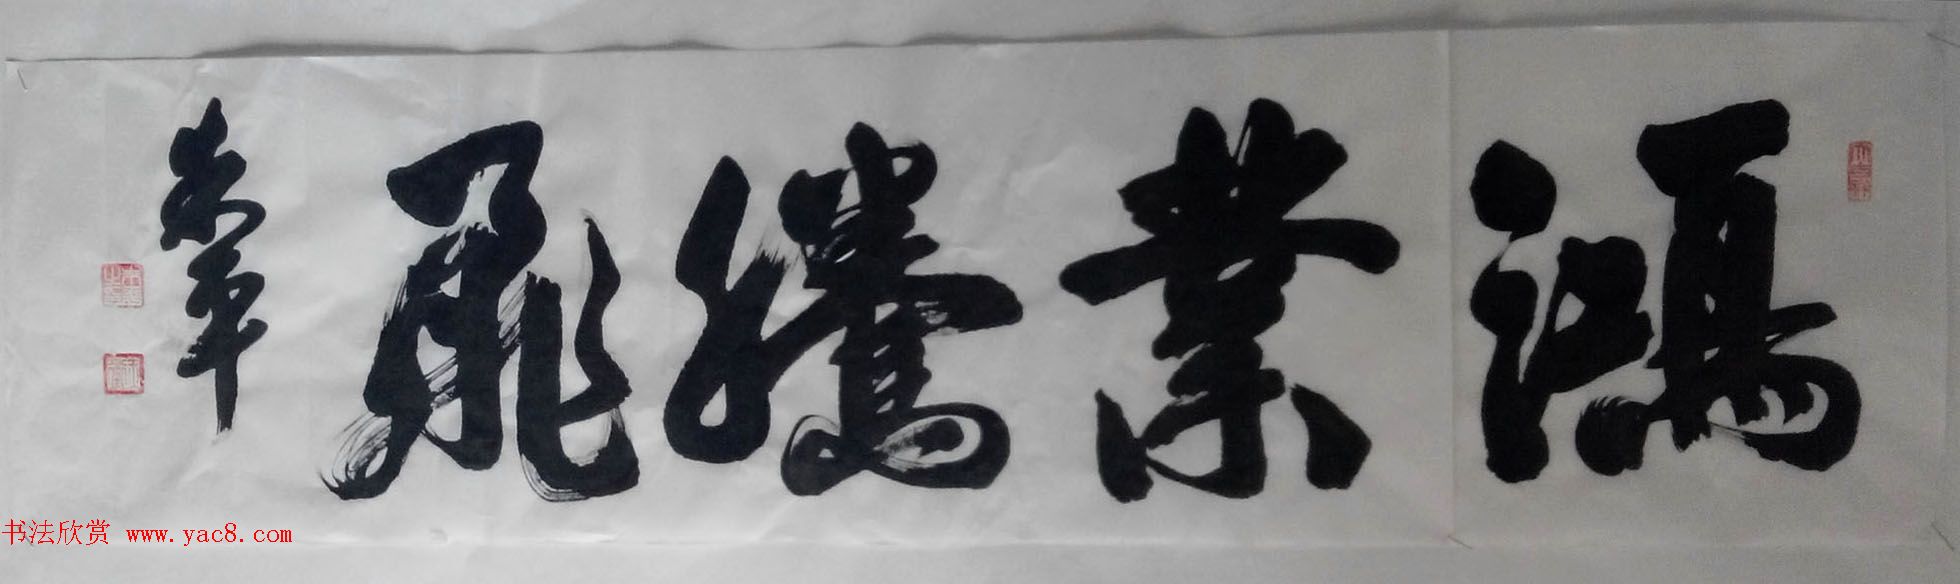 鴻業騰飛
书法欣赏 www.yac8.com